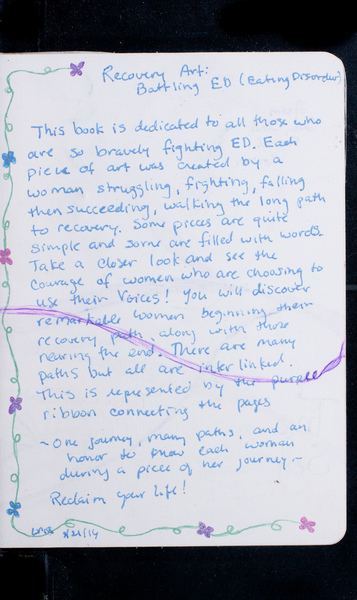 Recovery Art:
Battling ED (Eating Disorder)
This book is dedicated to all those who
are so bravely fighting ED. Each
piece of art was created by a
woman struggling, fighting, falling
then succeeding, walking the long path
to recovery. Some pieces are quite
simple and some are filled with words.
Take a closer look and see the
courage of women who are choosing to
use their voices! You will discover
remarkable women beginning their
recovery path along with those
nearing the end. There are many
paths but all are interlinked.
This is represented by the purple
ribbon connecting the pages
~One journey, many paths, and an
honor to know each woman
during a piece of her journey.~
Reclaim your life!